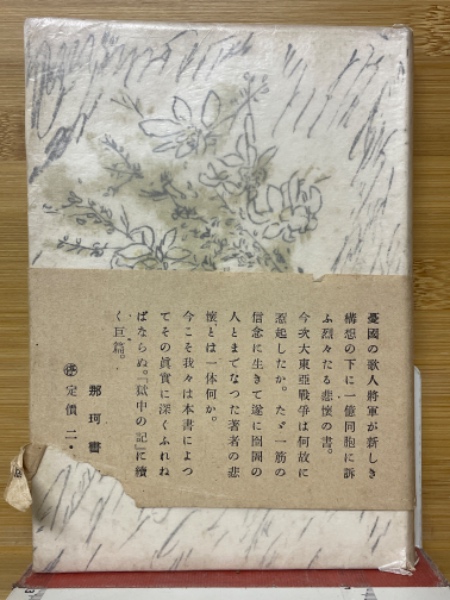 憂國の歌人將軍が新しき
構想の下に一億同胞に訴
ふ烈々たる悲懷の書。
今次大東亞戰爭は何故に
惹起したか。たゞ一筋の
信念に生きて遂に囹圄の
人とまでなつた著者の悲
懷とは一体何か。
今こそ我々は本書によつ
てその眞實に深くふれね
ばならぬ。『獄中の記』に續
く巨篇。
那珂書
定價二・